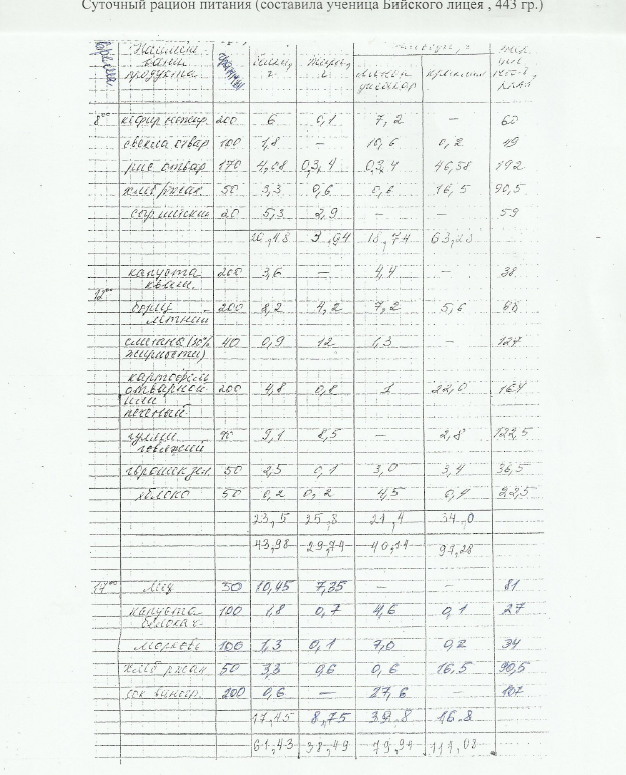 Суточный рацион питания (составила ученица Бийского лицея , 443 гр.)
Время Наимено- вание продукта белки, г жиры, г
8⁰⁰ кефир нежир. 200 6 0,1 7,2 — 60
свекла отвар 100 1,8 — 10,6 0,2 49
рис отвар 170 4,08 0,3,4 0,3,4 46,58 192
хлеб ржан. 50 3,3 0,6 0,6 16,5 90,5
20 5,3 2,9 — — 59
20,48 3,94 18,74 63,28
капуста кваш. 200 3,6 — 4,4 — 38
12⁰⁰ борщ летний 200 2,2 4,2 7,2 5,6 68
сметана (30% жирности) 40 0,9 12 1,3 — 127
картофель
отварной
или
печеный 200 4,8 0,8 1 22,0 164
гуляш
говяжий 9,1 8,5 — 2,8 122,5
горошек зел. 50 2,5 0,1 3,0 3,4 36,5
яблоко 50 0,2 0,2 4,5 0,4 22,5
23,5 25,8 21,4 34,0
43,98 29,74 40,14 97,28
17⁰⁰ 50 10,45 7,35 — — 81
капуста
белокач. 100 1,8 0,7 4,6 0,1 27
морковь 100 1,3 0,1 7,0 0,2 34
хлеб ржан 50 3,3 0,6 0,6 16,5 90,5
сок виногр. 200 0,6 — 27,6 — 107
17,45 8,75 39,8 16,8
61,43 38,49 79,94 111,08